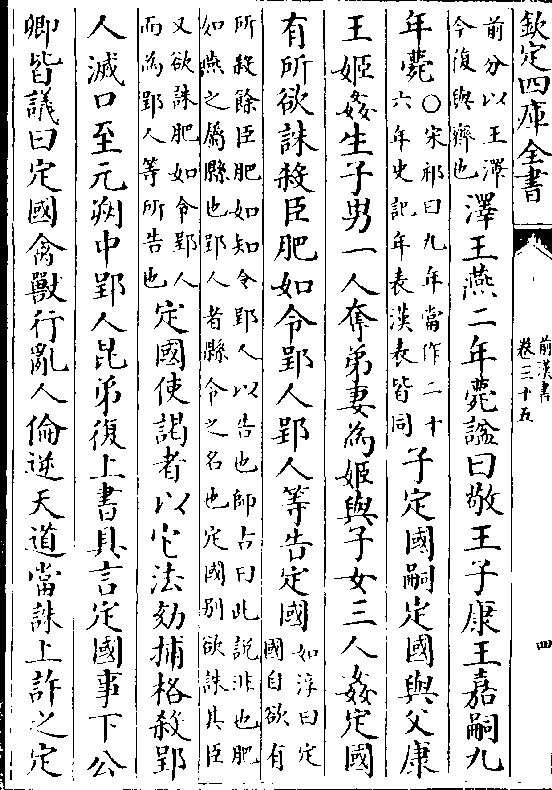 欽定四庫全書
前漢書
卷三十五
四
前分以王澤
今復與齊也
澤王燕二年薨諡曰敬王子康王嘉嗣九
年薨
○宋祁曰九年當作二十
六年史記年表漢表皆同
子定國嗣定國與父康
王姬姦生子男一人奪弟妻為姬與子女三人姦定國
有所欲誅殺臣肥如令郢人郢人等告定國
如淳曰定
國自欲有
所殺餘臣肥如知令郢人以告也師古曰此說非也肥
如燕之屬縣也郢人者縣令之名也定國别欲誅其臣
又欲誅肥如令郢人
而為郢人等所告也
定國使謁者以它法劾捕格殺郢
人滅口至元朔中郢人昆弟復上書具言定國事下公
卿皆議曰定國禽獸行亂人倫逆天道當誅上許之定